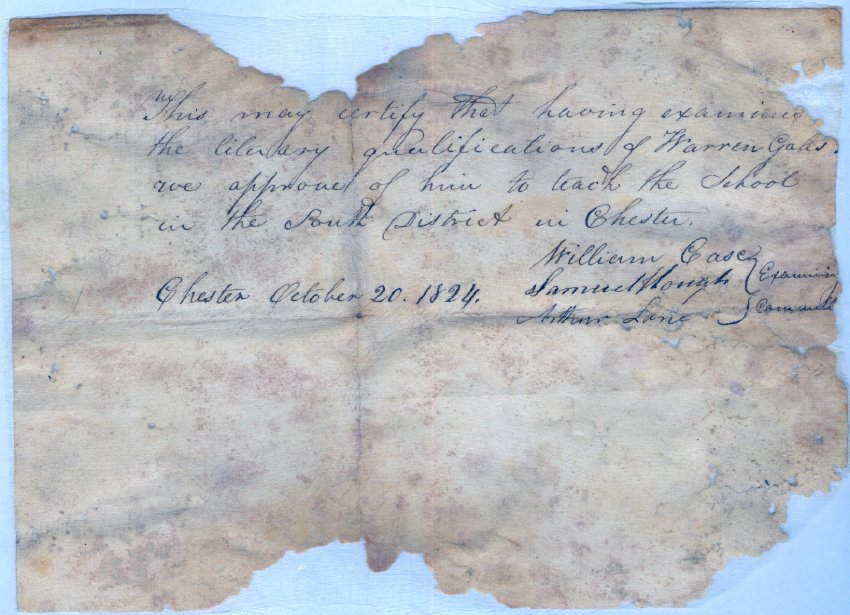 This may certify that having examined
the literary qualifications of Warren Gates.
we approve of him to teach the School
in the South District in Chester.
William Case
Samuel Hough Examinin
Chester October 20. 1824.
Arthur Committ